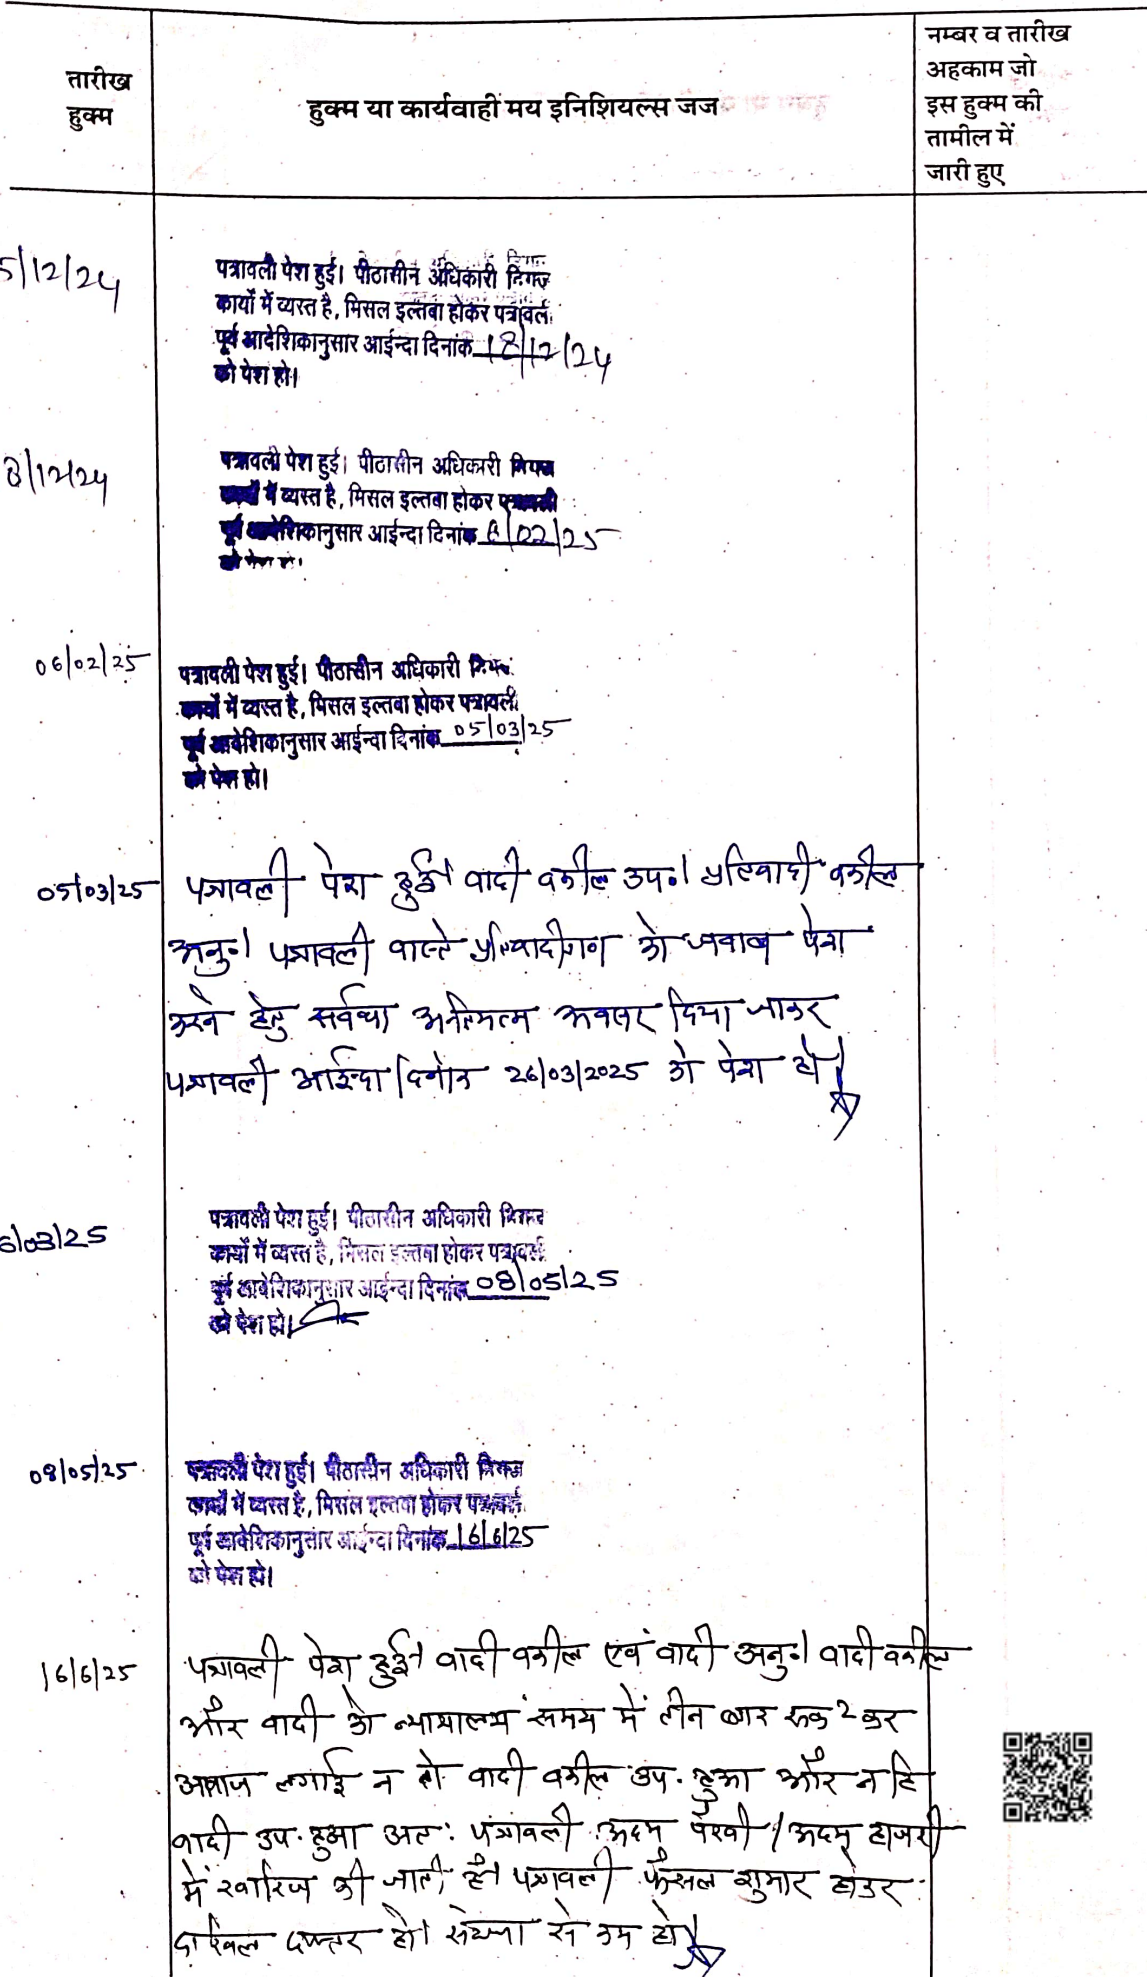 तारीख
हुक्म
हुक्म या कार्यवाही मय इनिशियल्स जज
नम्बर व तारीख
अहकाम जो
इस हुक्म की
तामील में
जारी हुए
5/12/24
पत्रावली पेश हुई। पीठासीन अधिकारी
कार्यो में व्यस्त है, मिसल इल्तवा होकर
पूर्व आदेशिकानुसार आईन्दा दिनांक 18/12/24
को पेश हो।
8/12/24
पत्रावली पेश हुई। पीठासीन अधिकारी
कार्यो में व्यस्त है, मिसल इल्तवा होकर पत्रावली
पूर्व आदेशिकानुसार आईन्दा दिनांक 6/02/25
06/02/25
पत्रावली पेश हुई। पीठासीन अधिकारी
कार्यो में व्यस्त है, मिसल इल्तवा होकर पत्रावली
पूर्व आदेशिकानुसार आईन्दा दिनांक 05/03/25
को पेश हो।
05/03/25
पत्रावली पेश हुई। वादी वकील उप०। प्रतिवादी वकील
अनु०। पत्रावली वास्ते प्रतिवादीगण को जवाब पेश
करने हेतु सर्वथा अन्तिमतम अवसर दिया जाकर
पत्रावली आईन्दा दिनांक 26/03/2025 को पेश हो।
6/03/25
पत्रावली पेश हुई। पीठासीन अधिकारी
कार्यो में व्यस्त है, मिसल इल्तवा होकर
पूर्व आदेशिकानुसार आईन्दा दिनांक 08/05/25
को पेश हो।
08/05/25
पत्रावली पेश हुई। पीठासीन अधिकारी
कार्यो में व्यस्त है, मिसल इल्तवा होकर
पूर्व आदेशिकानुसार आईन्दा दिनांक 16/6/25
को पेश हो।
16/6/25
पत्रावली पेश हुई। वादी वकील एवं वादी अनु०। वादी वकील
और वादी को न्यायालय समय में तीन बार रूक 2 कर
आवाज लगाई न तो वादी वकील उप. हुआ और न हि
वादी उप. हुआ अत: पत्रावली अदम पैरवी / अदम हाजरी
में खारिज की जाती है। पत्रावली फैसल शुमार होकर
दाखिल दफ्तर हो। संख्या से कम हो।